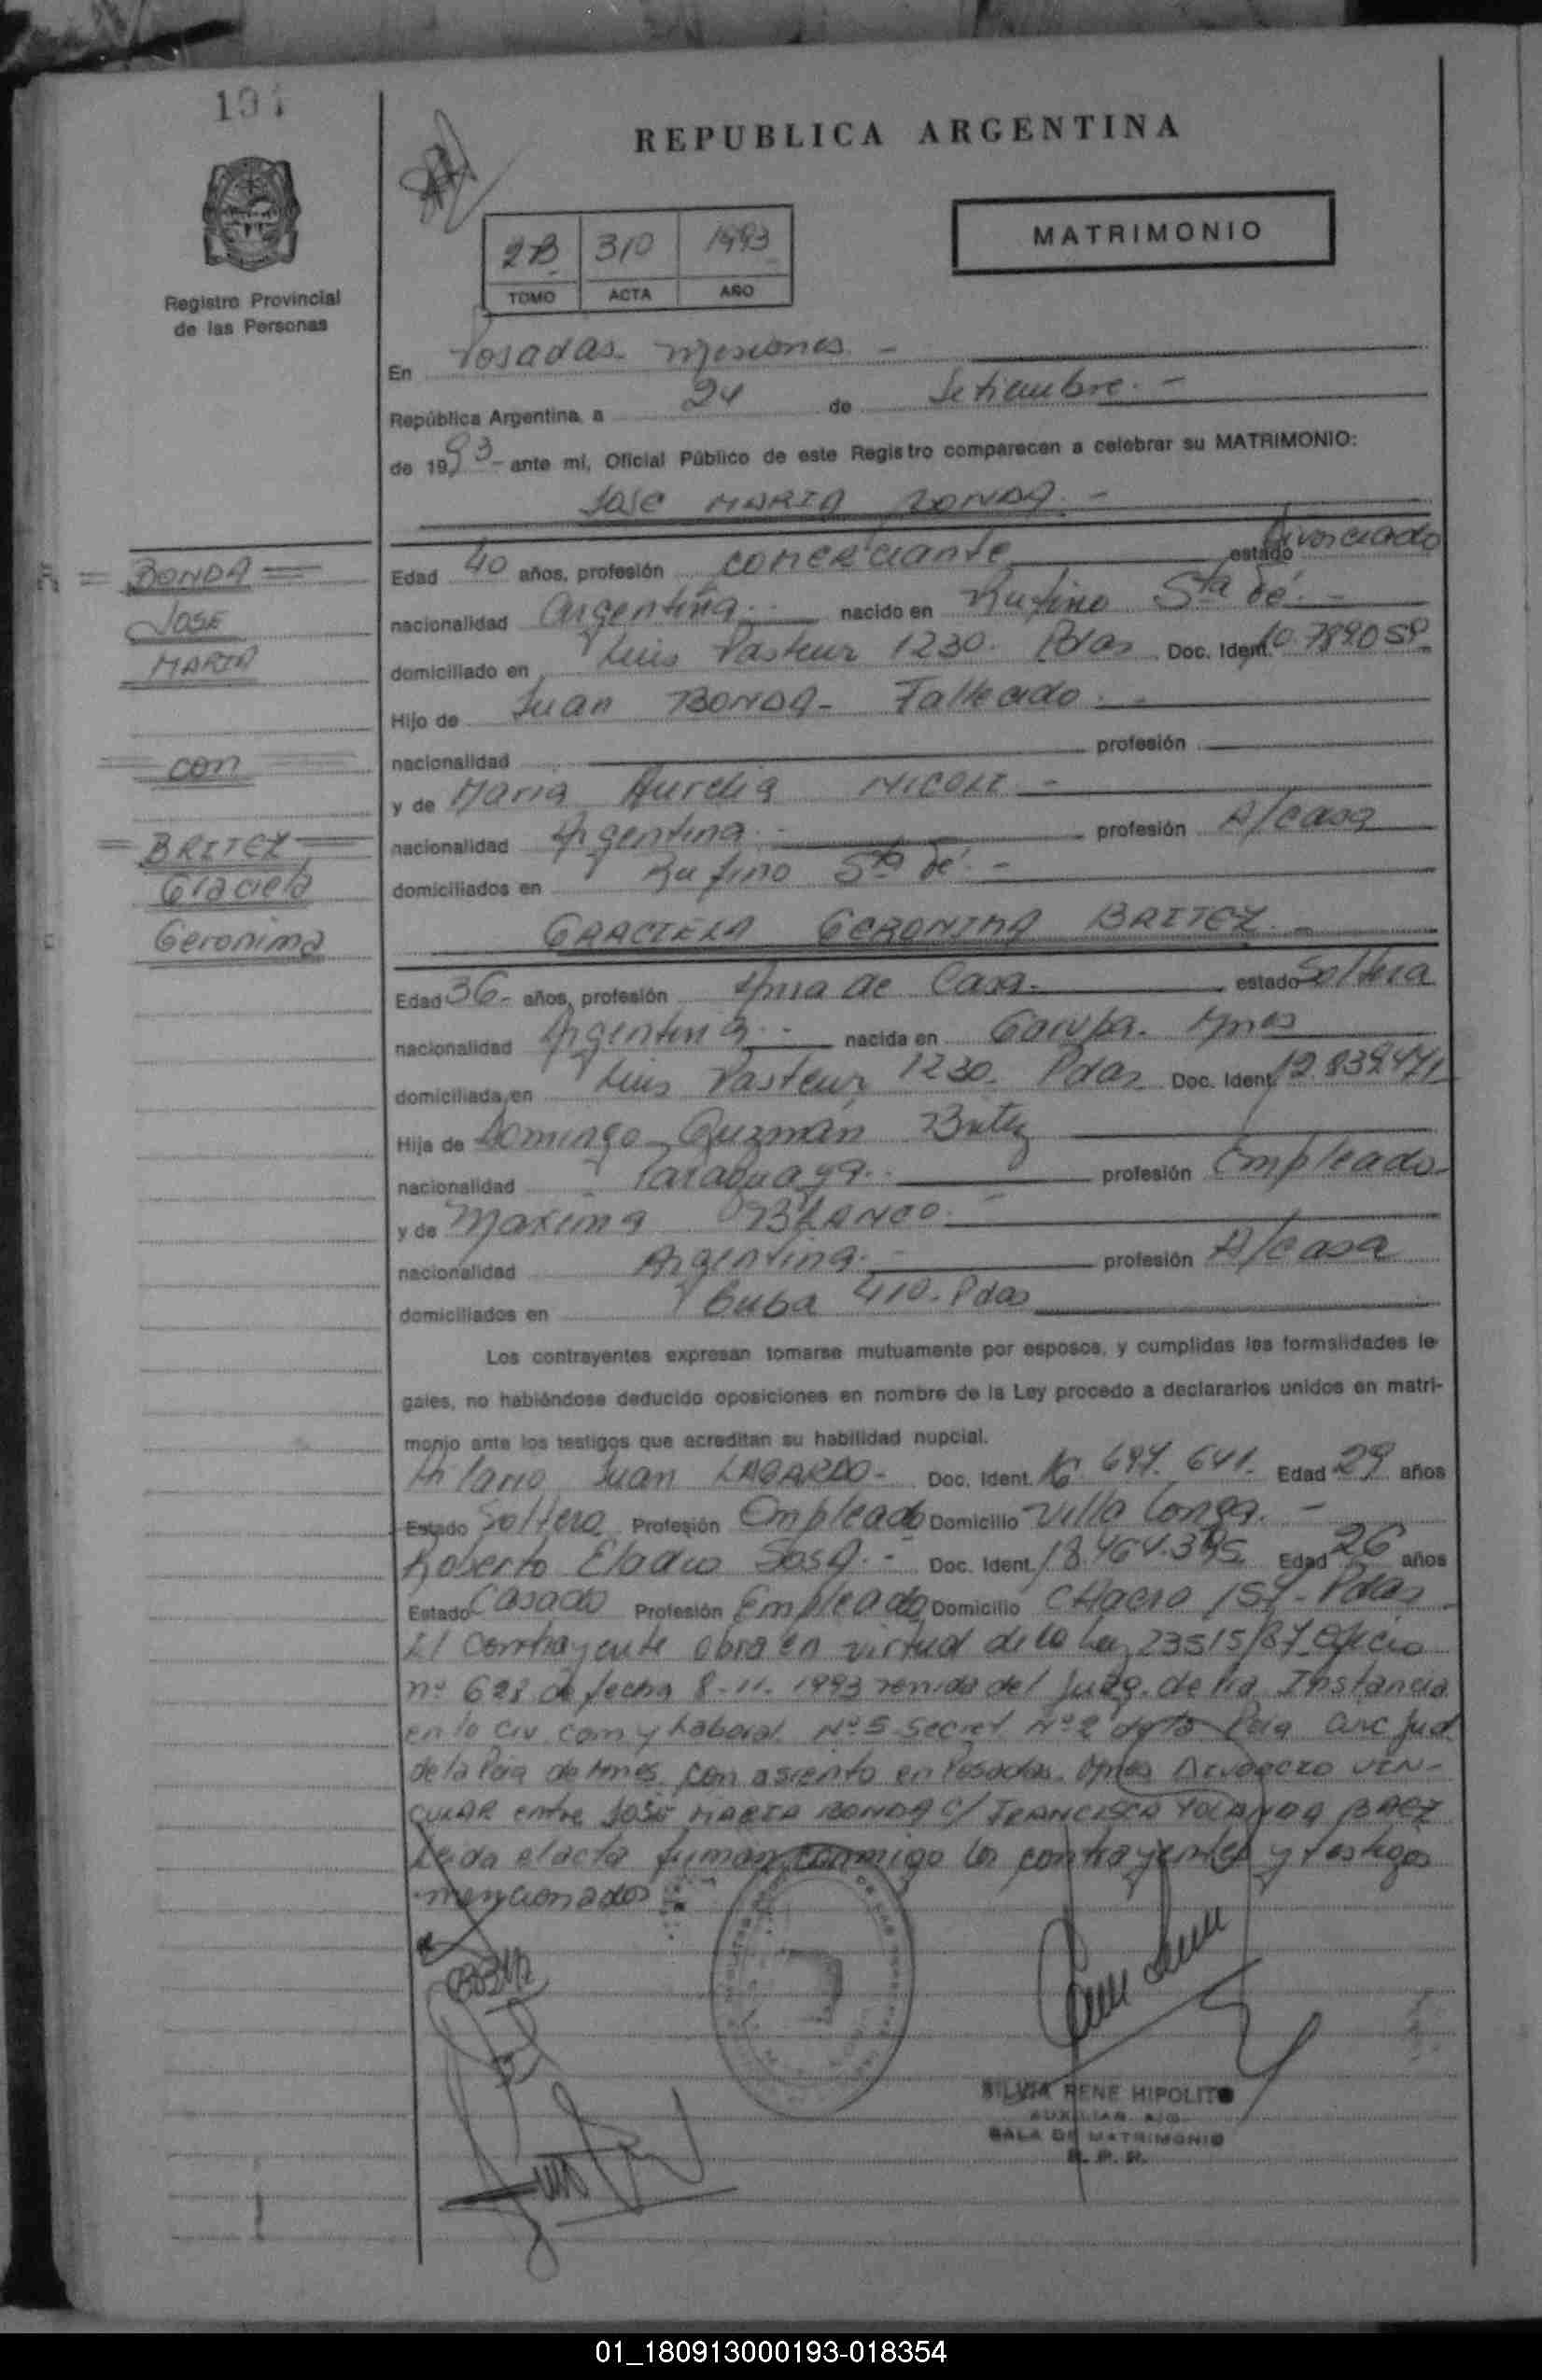 REPUBLICA ARGENTINA
MATRIMONIO
2B 310 1993
TOMO ACTA AÑO
Registro Provincial
de las Personas
En Posadas Misiones
República Argentina, a 24 de Setiembre
de 1993 ante mi, Oficial Público de este Registro comparecen a celebrar su MATRIMONIO:
JOSE MARIA BONDA
BONDA
JOSE
MARIA
con
BRITEZ
Graciela
Geronima
Edad 40 años, profesión comerciante estado Divorciado
nacionalidad Argentina nacido en Rufino Sta Fé
domiciliado en Luis Pasteur 1230 Pdas Doc. Ident.
Hijo de Juan BONDA - Fallecido
nacionalidad profesión
y de Maria Aurelia NICOLI
nacionalidad Argentina profesión A/casa
domiciliados en Rufino Sta Fé
GRACIELA GERONIMA BRITEZ
Edad 36 años, profesión Ama de Casa estado Soltera
nacionalidad Argentina nacida en Garupa. Mnes
domiciliada en Luis Pasteur 1230 Pdas Doc. Ident. 12.839.471
Hija de Domingo Guzmán Britez
nacionalidad Paraguaya profesión Empleado
y de Maxima BLANCO
nacionalidad Argentina profesión A/casa
domiciliados en Cuba 410. Pdas
Los contrayentes expresan tomarse mutuamente por esposos, y cumplidas las formalidades le-
gales, no habiéndose deducido oposiciones en nombre de la Ley procedo a declararlos unidos en matri-
monio ante los testigos que acreditan su habilidad nupcial.
Hilario Juan Doc. Ident. 16.697.641 Edad 29 años
Estado Soltero Profesión Empleado Domicilio Villa Longa
Roberto Eladio Sosa Doc. Ident. Edad 26 años
Estado Casado Profesión Empleado Domicilio CHacra Pdas
El contrayente obra en virtud de la Ley 23515/87 Oficio
nº 628 de fecha 8-11-1993 venida del Juzg. de 1ra Instancia
en lo Civ. Com y Laboral Nº 5 Secret. Nº 2 de la Pcia Circ Jud
de la Pcia de Mnes. con asiento en Posadas. Mnes DIVORCIO VIN-
CULAR entre JOSE MARIA BONDA C/ FRANCISCA YOLANDA BAEZ
Leida el acta firman conmigo los contrayentes y testigos
mencionados
SILVIA RENE HIPOLITO
AUXILIAR A/C
SALA DE MATRIMONIO
R. P. P.
01_180913000193-018354